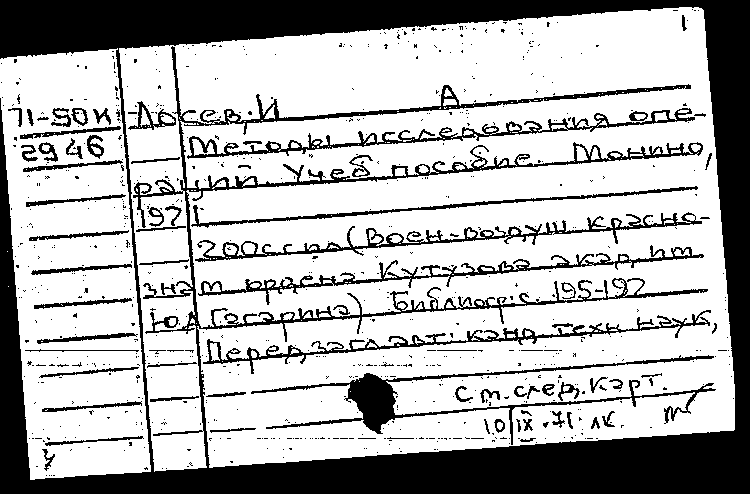 1
71-50К Лосев, И А
2946 Методы исследования опе-
раций. Учеб пособие. Монино,
1971
200с с ил (Воен-воздуш красно-
знам ордена Кутузова акад им
Ю А Гагарина). Библиогр: с. 195-197
Перед загл авт: канд техн наук,
См. след. карт.
10 IX.71. ЛК.